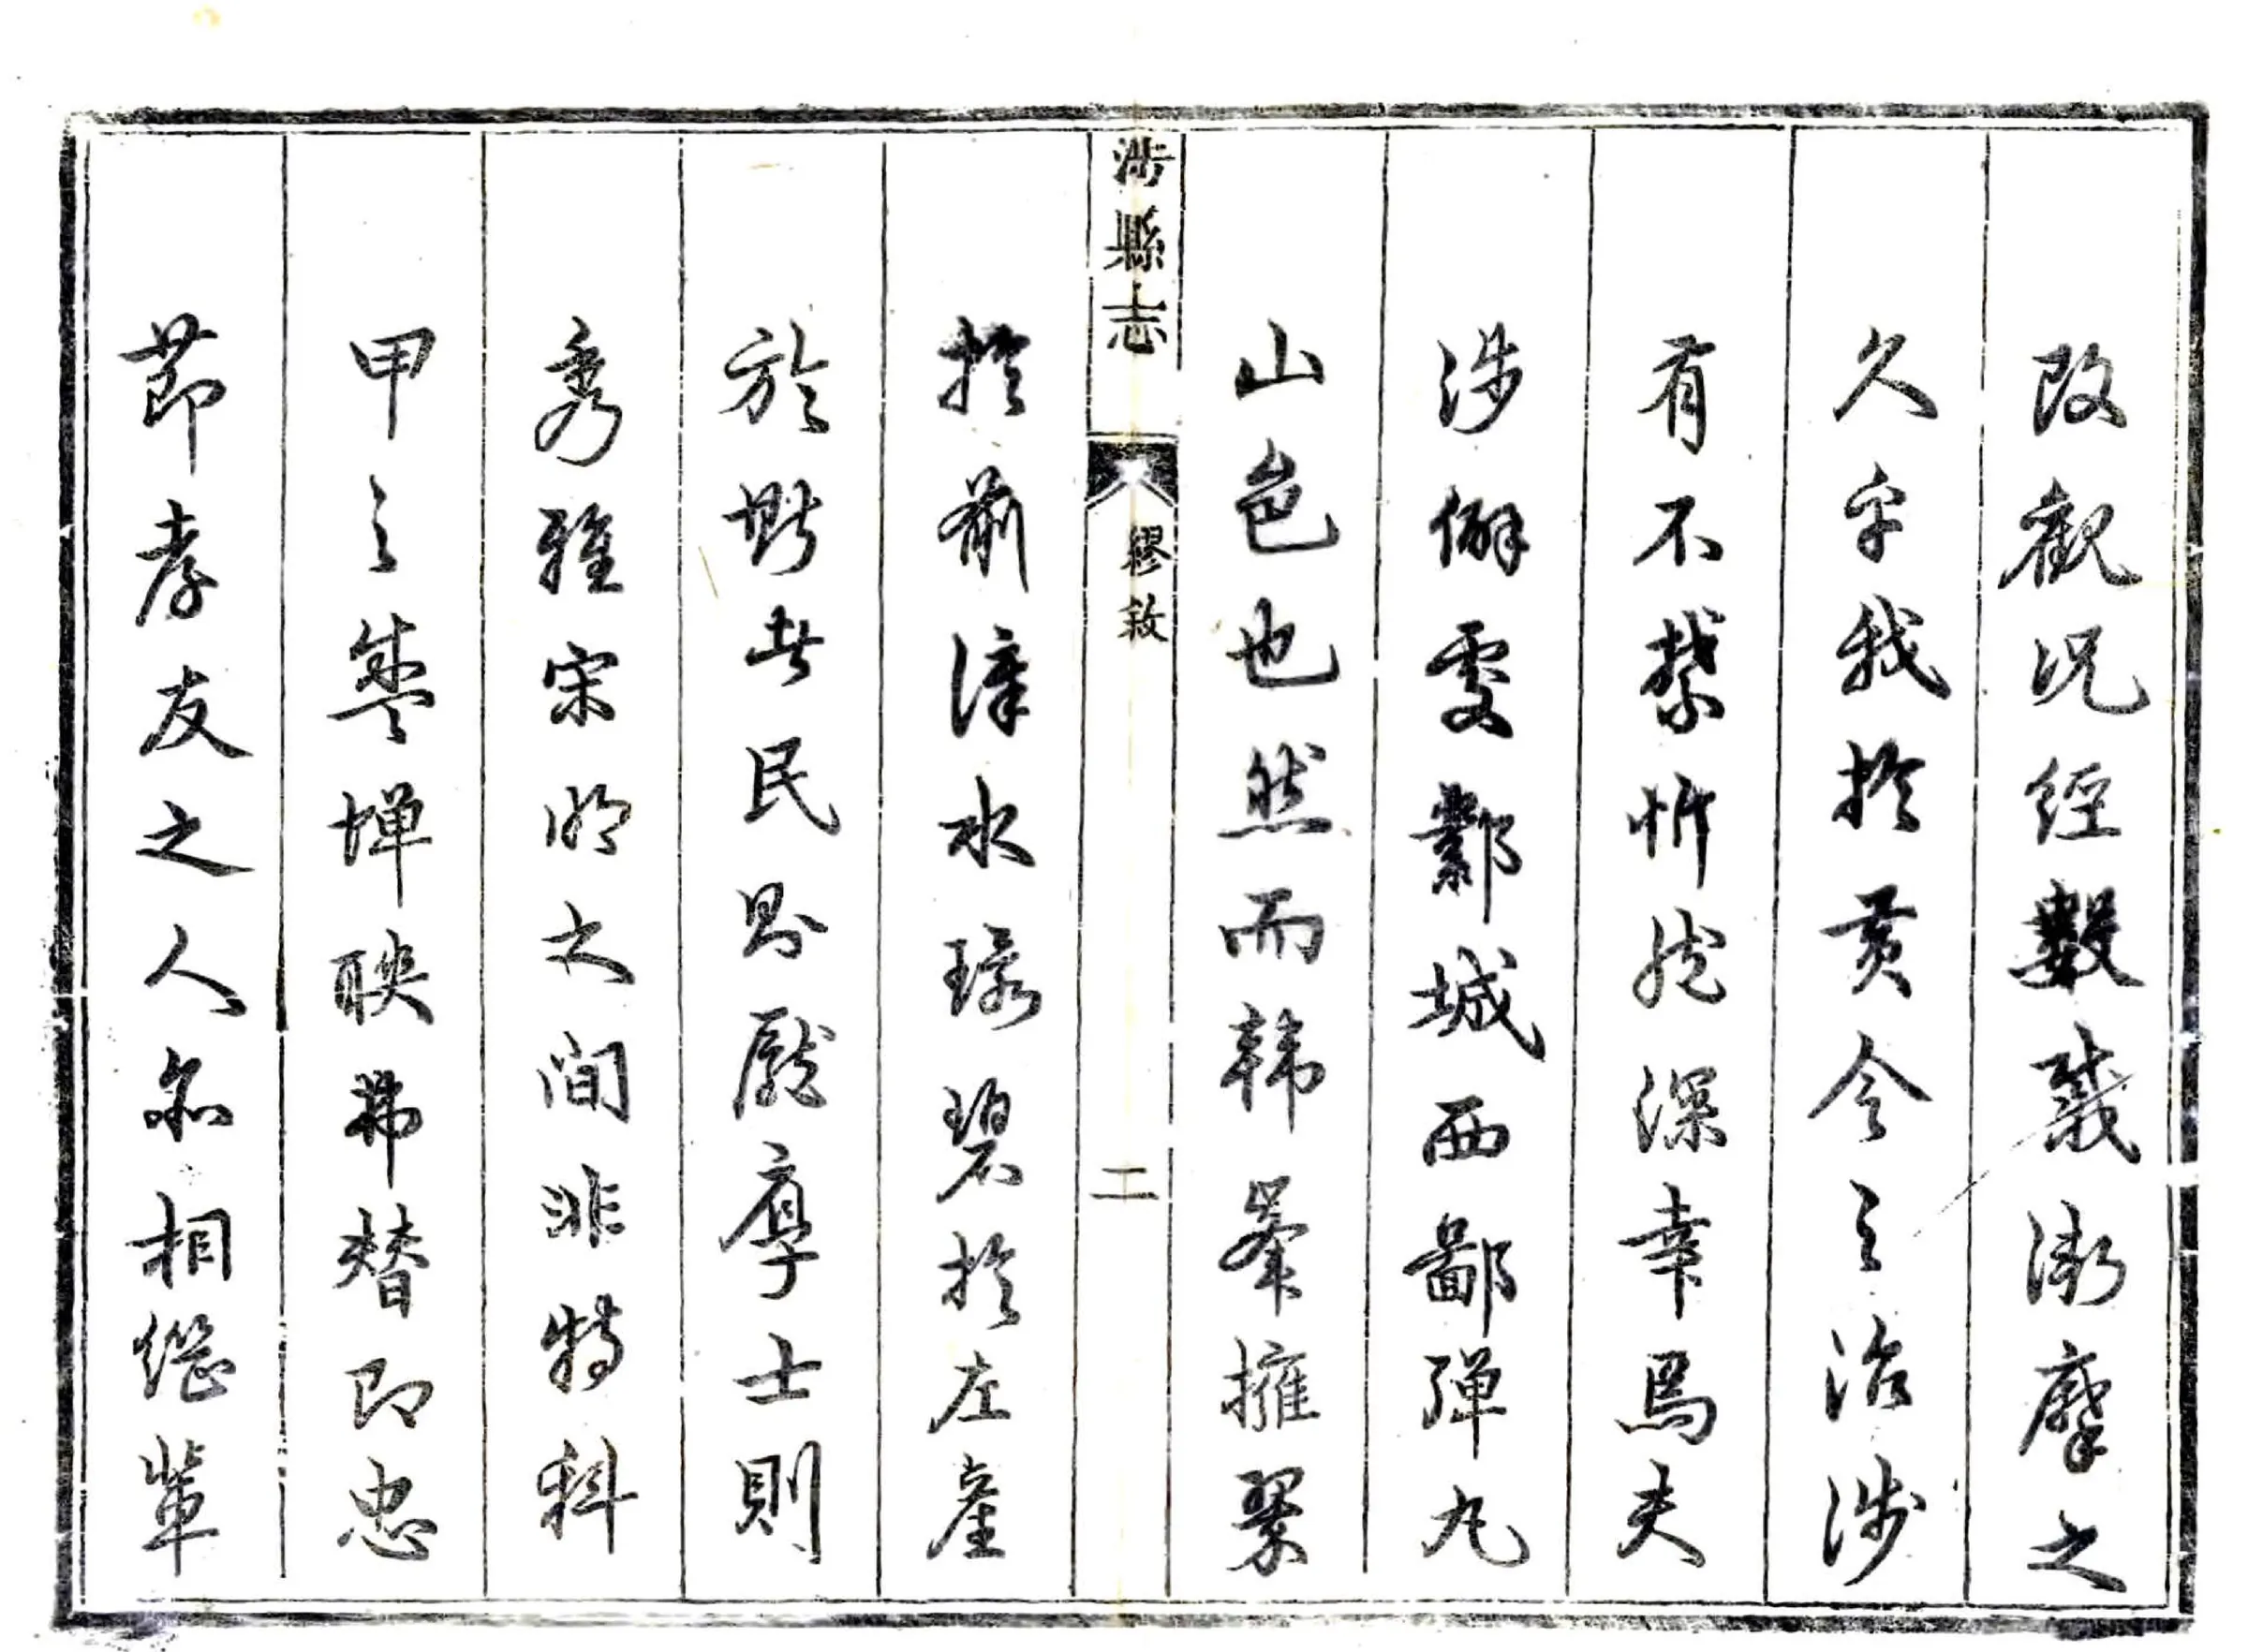 改觀況經數載漸摩之
久乎我於莫今之治涉
有不禁忻然深幸焉夫
涉僻處鄴城西鄙彈丸
山邑也然而韓峯擁翠
於前漳水環碧於左產
於斯者民則敦厚士則
秀雅宋明之間非特科
甲之蟬聯弗替即忠
節孝友之人亦相繼輩
涉縣志
繆敘
二